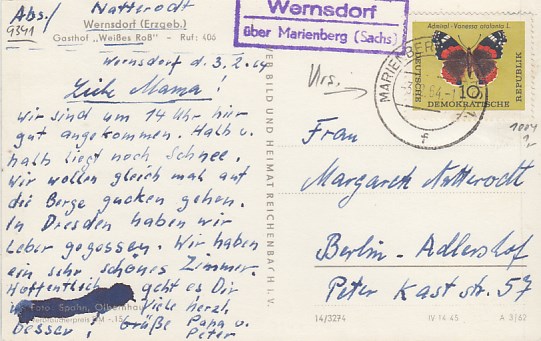 Abs./ Natterodt
9341
Wernsdorf (Erzgeb.)
Gasthof „Weißes Roß" - Ruf: 406
Wernsdorf d. 3.2.64
Liebe Mama!
Wir sind um 14 Uhr hier
gut angekommen. Halb u.
halb liegt noch Schnee.
Wir wollen gleich mal auf
die Berge gucken gehen.
In Dresden haben wir
Leber gegossen. Wir haben
ein sehr schönes Zimmer.
Hoffentlich geht es Dir
Foto Spahn, Olbernhau
Viele herzl.
besser! Grüße Papa u.
Peter
VEB BILD UND HEIMAT REICHENBACH I. V.
Wernsdorf
über Marienberg (Sachs)
MARIENBERG
64-1
f
Admiral - Vanessa atalanta L.
10
DEUTSCHE
DEMOKRATISCHE
REPUBLIK
1004
Frau
Margarete Natterodt
Berlin-Adlershof
Peter Kast str. 57
14/3274
IV 14 45
A 3/62